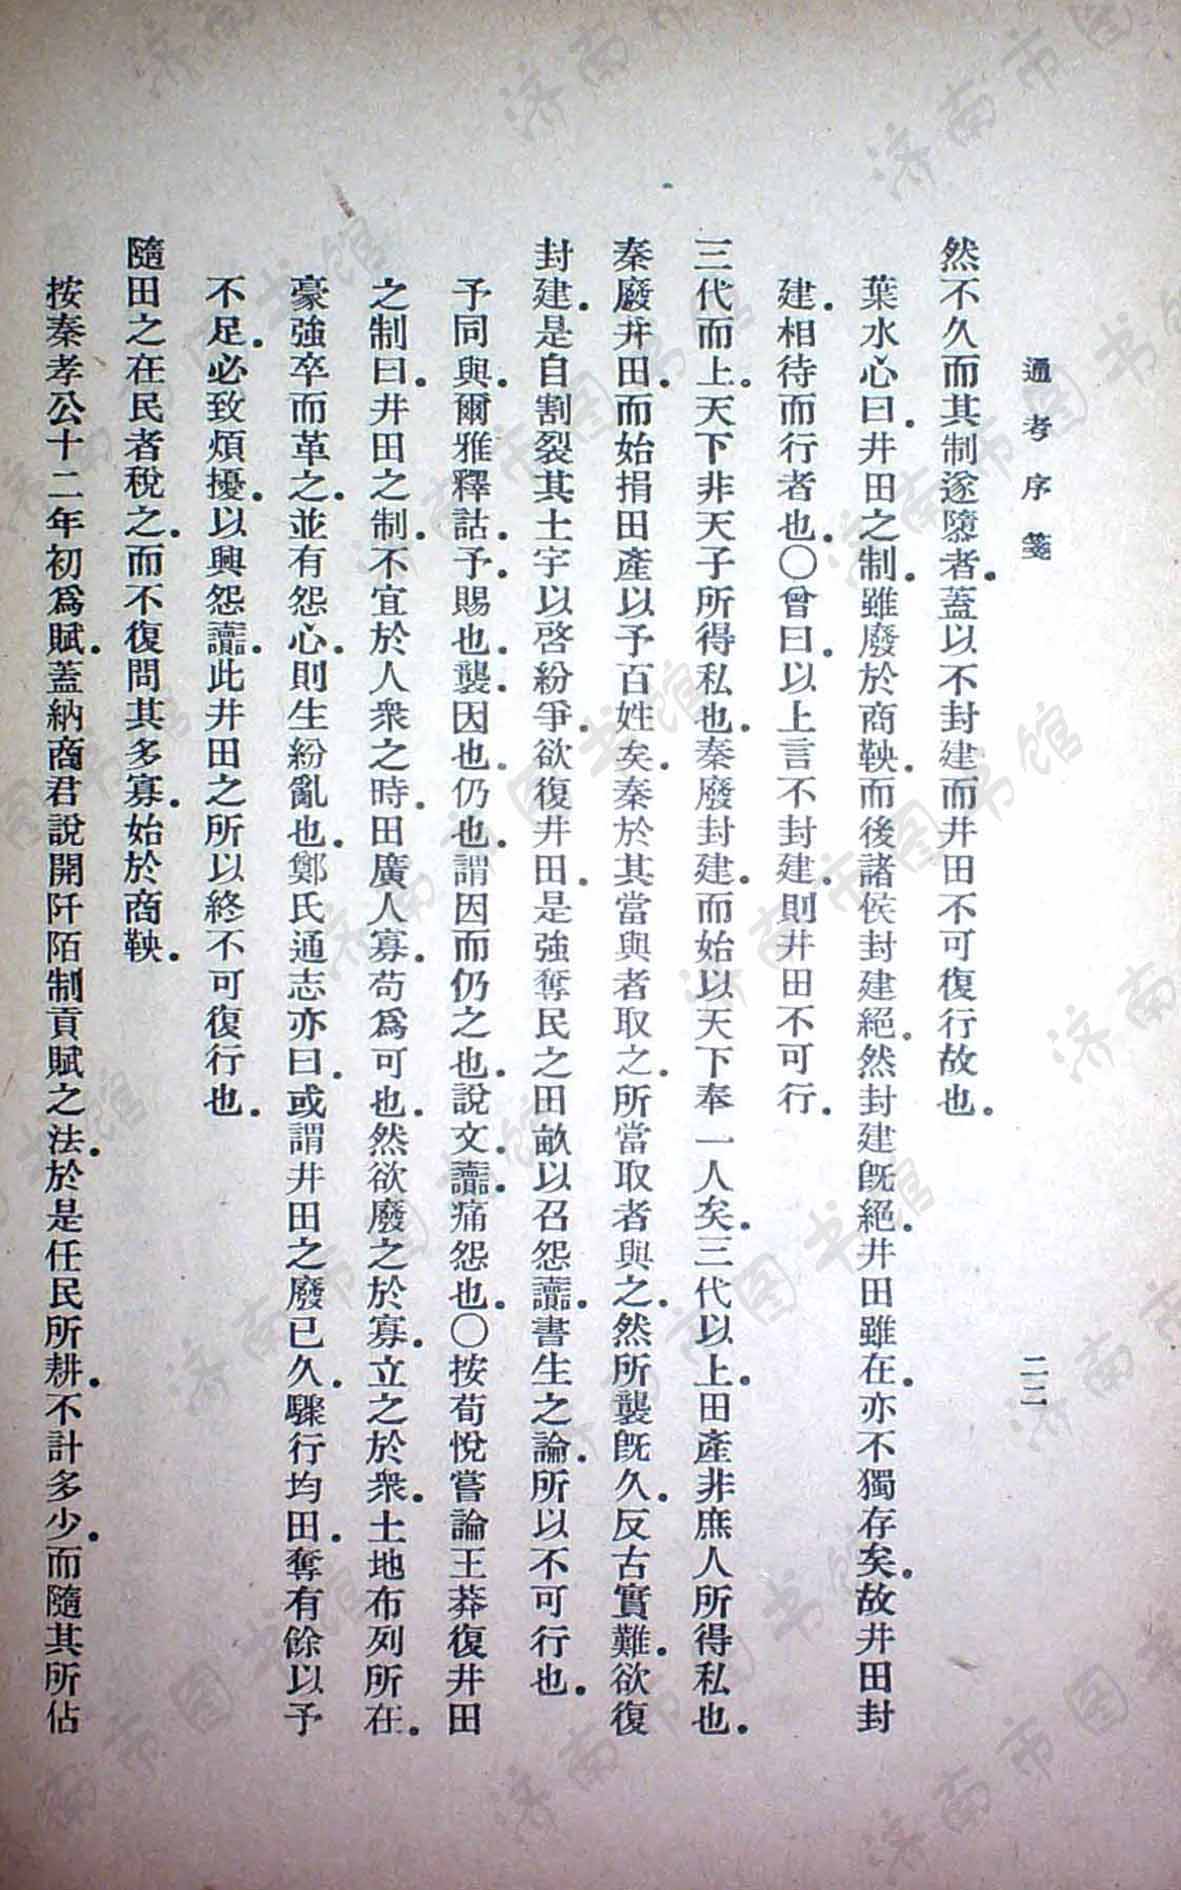 通考序箋
二二
然不久而其制遂隳者。蓋以不封建而井田不可復行故也。
葉水心曰。井田之制。雖廢於商鞅。而後諸侯封建絕。然封建旣絕。井田雖在。亦不獨存矣。故井田封
建。相待而行者也。〇曾曰。以上言不封建。則井田不可行。
三代而上。天下非天子所得私也。秦廢封建。而始以天下奉一人矣。三代以上。田產非庶人所得私也。
秦廢井田。而始捐田產以予百姓矣。秦於其當與者取之。所當取者與之。然所襲旣久。反古實難。欲復
封建。是自割裂其土宇以啓紛爭。欲復井田。是強奪民之田畝以召怨讟。書生之論。所以不可行也。
予同與。爾雅釋詁。予。賜也。襲。因也。仍也。謂因而仍之也。說文。讟。痛怨也。〇按荀悅嘗論王莽復井田
之制曰。井田之制。不宜於人衆之時。田廣人寡。苟爲可也。然欲廢之於寡。立之於衆。土地布列所在。
豪強卒而革之。並有怨心。則生紛亂也。鄭氏通志亦曰。或謂井田之廢已久。驟行均田。奪有餘以予
不足。必致煩擾。以興怨讟。此井田之所以終不可復行也。
隨田之在民者稅之。而不復問其多寡。始於商鞅。
按秦孝公十二年初爲賦。蓋納商君說開阡陌制貢賦之法。於是任民所耕。不計多少。而隨其所佔
济南市图书馆